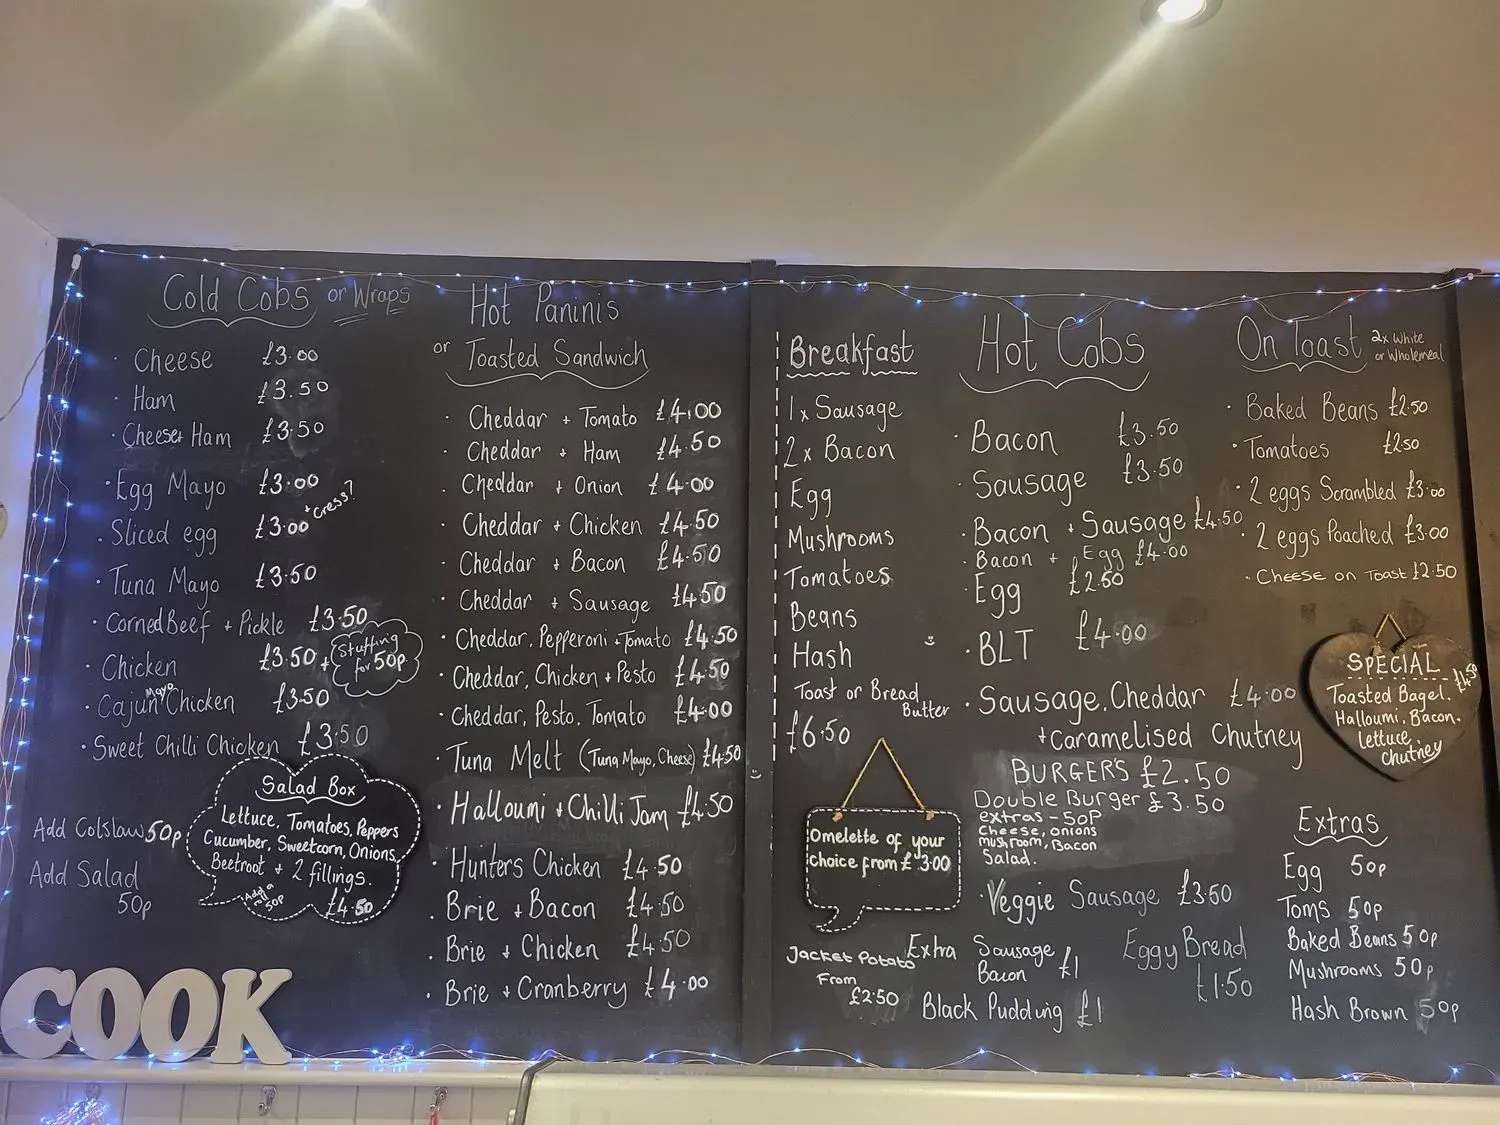 Cold Cobs or Wraps
· Cheese £3.00
· Ham £3.50
· Cheese + Ham £3.50
· Egg Mayo £3.00
+ cress?
· Sliced egg £3.00
· Tuna Mayo £3.50
· Corned Beef + Pickle £3.50
· Chicken £3.50 +
Stuffing
for 50p
Mayo
· Cajun Chicken £3.50
· Sweet Chilli Chicken £3.50
Add Colslaw 50p
Add Salad
50p
Salad Box
Lettuce, Tomatoes, Peppers
Cucumber, Sweetcorn, Onions,
Beetroot + 2 fillings.
Add a
50p
£4.50
COOK
Hot Paninis
or Toasted Sandwich
· Cheddar + Tomato £4.00
· Cheddar + Ham £4.50
· Cheddar + Onion £4.00
· Cheddar + Chicken £4.50
· Cheddar + Bacon £4.50
· Cheddar + Sausage £4.50
· Cheddar, Pepperoni + Tomato £4.50
· Cheddar, Chicken + Pesto £4.50
· Cheddar, Pesto, Tomato £4.00
· Tuna Melt (Tuna Mayo, Cheese) £4.50
· Halloumi + Chilli Jam £4.50
· Hunters Chicken £4.50
· Brie + Bacon £4.50
· Brie + Chicken £4.50
· Brie + Cranberry £4.00
Breakfast
1x Sausage
2x Bacon
Egg
Mushrooms
Tomatoes
Beans
Hash
Toast or Bread
Butter
£6.50
Omelette of your
choice from £3.00
Jacket Potato
From
£2.50
Hot Cobs
· Bacon £3.50
· Sausage £3.50
· Bacon + Sausage £4.50
· Bacon + Egg £4.00
· Egg £2.50
· BLT £4.00
· Sausage, Cheddar £4.00
+ Caramelised Chutney
BURGER'S £2.50
Double Burger £3.50
extras - 50P
Cheese, onions
mushroom, Bacon
Salad.
· Veggie Sausage £3.50
Extra Sausage
Bacon £1
Black Pudding £1
Eggy Bread
£1.50
On Toast 2x White
or Wholemeal
· Baked Beans £2.50
· Tomatoes £2.50
· 2 eggs Scrambled £3.00
· 2 eggs Poached £3.00
· Cheese on Toast £2.50
SPECIAL
£4.50
Toasted Bagel.
Halloumi, Bacon.
lettuce,
chutney
Extras
Egg 50p
Toms 50p
Baked Beans 50p
Mushrooms 50p
Hash Brown 50p